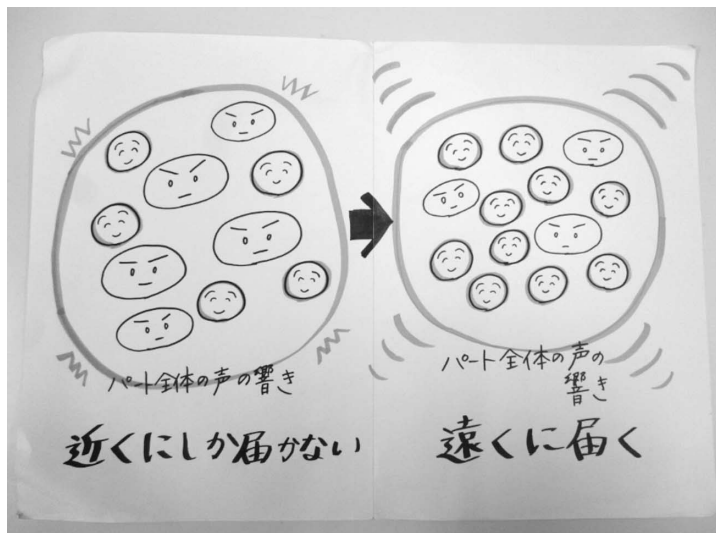 パート全体の声の響き
近くにしか届かない
パート全体の声の
響き
遠くに届く